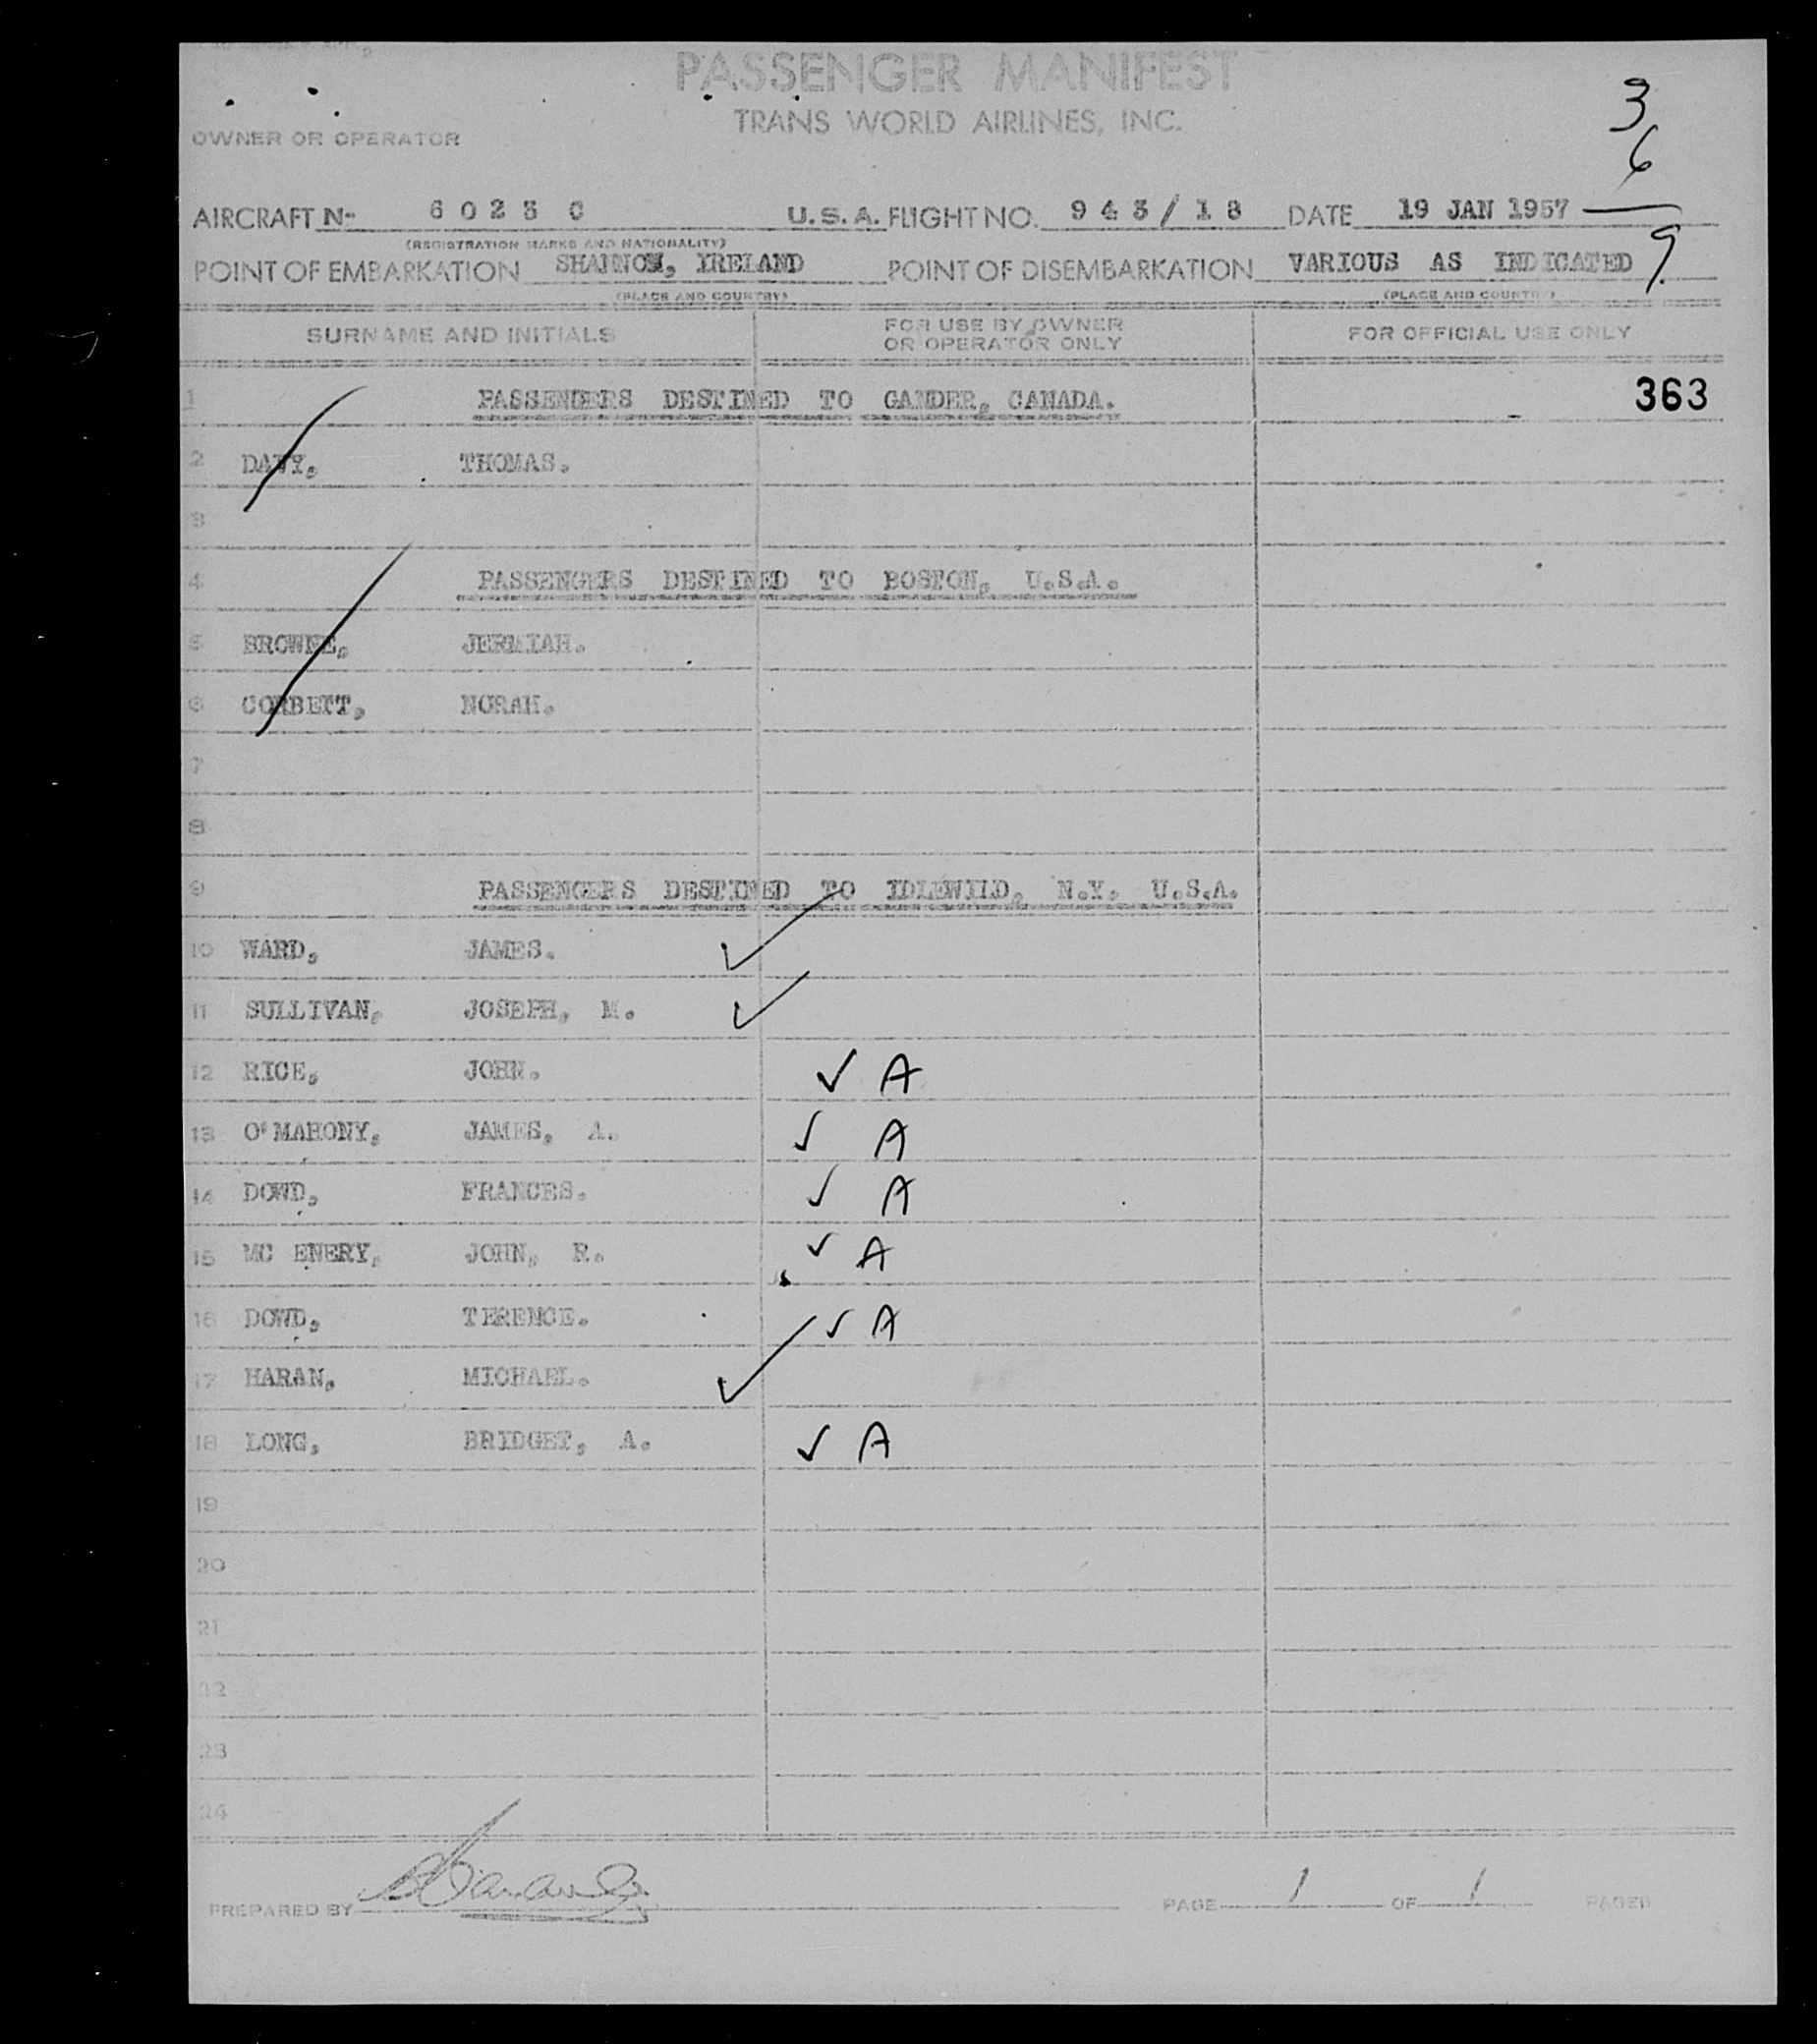 PASSENGER MANIFEST
TRANS WORLD AIRLINES, INC.
3
6
9
OWNER OR OPERATOR
AIRCRAFT N- 6023 C U.S.A. FLIGHT NO. 943/18 DATE 19 JAN 1957
(REGISTRATION MARKS AND NATIONALITY)
POINT OF EMBARKATION SHANNON, IRELAND POINT OF DISEMBARKATION VARIOUS AS INDICATED
(PLACE AND COUNTRY) (PLACE AND COUNTRY)
SURNAME AND INITIALS FOR USE BY OWNER OR OPERATOR ONLY FOR OFFICIAL USE ONLY
1 PASSENGERS DESTINED TO GANDER, CANADA. 363
2 DAVY, THOMAS.
3
4 PASSENGERS DESTINED TO BOSTON, U.S.A.
5 BROWNE, JERMIAH.
6 CORBETT, NORAH.
7
8
9 PASSENGERS DESTINED TO IDLEWILD, N.Y. U.S.A.
10 WARD, JAMES. ✓
11 SULLIVAN, JOSEPH, M. ✓
12 RICE, JOHN. ✓ A
13 O'MAHONY, JAMES, A. ✓ A
14 DOWD, FRANCES. ✓ A
15 MC ENERY, JOHN, R. ✓ A
16 DOWD, TERENCE. ✓ A
17 HARAN, MICHAEL. ✓
18 LONG, BRIDGET, A. ✓ A
19
20
21
22
23
24
PREPARED BY PAGE 1 OF 1 PAGES